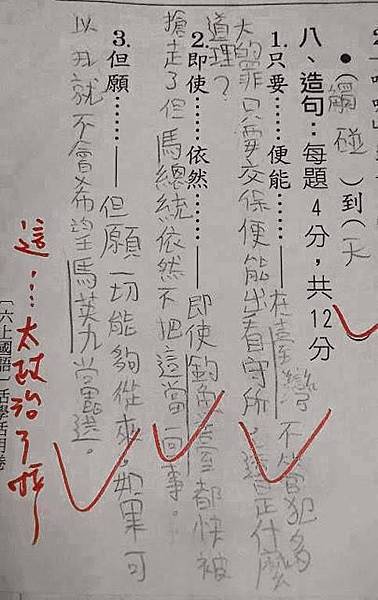 (觸碰)到(天
八、造句：每題4分，共12分
1.只要……便能……——在臺灣，不管犯多
大的罪只要交保便能出看守所，這是什麼
道理？
2.即使……依然……——即使釣魚臺都快被
搶走了但馬總統依然不把這當一回事。
3.但願……——但願一切能夠從來，如果可
以我就不會希望馬英九當選。
這…太政治了吧
〔六上國語〕活學活用卷